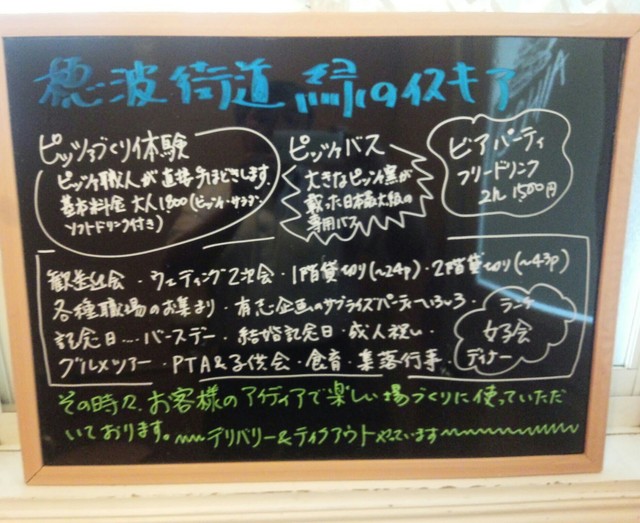 穂波街道 緑のイスキア
ピッツァづくり体験
ピッツァ職人が直接手ほどきします。
基本料金 大人1,800(ピッツァ・サラダ・
ソフトドリンク付き)
ピッツァバス
大きなピッツァ窯が
載った日本最大級の
専用バス
ビアパーティ
フリードリンク
2h 1,500円
歓送迎会・ウェディング2次会・1階貸切り(~24p)・2階貸切り(~43p)
各種職場のお集まり・有志企画のサプライズパーティーいろいろ
記念日…バースデー・結婚記念日・成人祝い
グルメツアー・PTA&子供会・食育・集落行事
ランチ
女子会
ディナー
その時々、お客様のアイディアで楽しい場づくりに使っていただ
いております。デリバリー&テイクアウトやっています